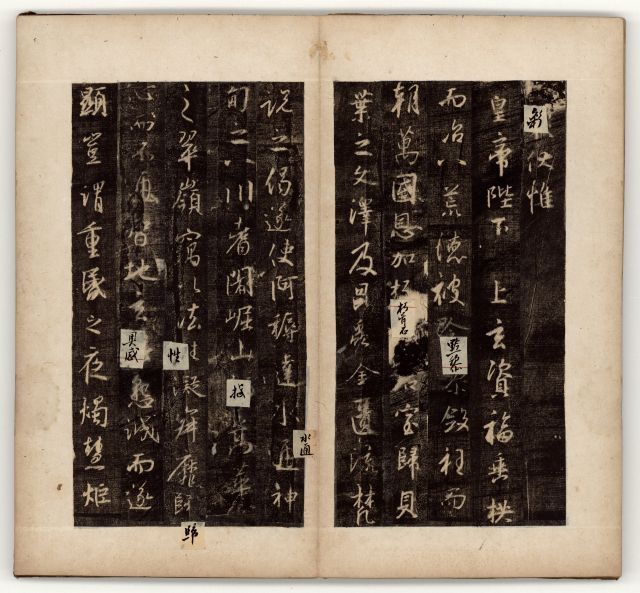 伏惟
皇帝陛下 上玄資福垂拱
而治八荒德被黔黎斂衽而
朝萬國恩加朽骨石室歸貝
葉之文澤及昆蟲金匱流梵
說之偈遂使阿耨達水通神
甸之八川耆闍崛山接嵩華
之翠嶺竊以法性凝寂靡歸
心而不通智地玄奧感懇誠而遂
顯豈謂重昏之夜燭慧炬